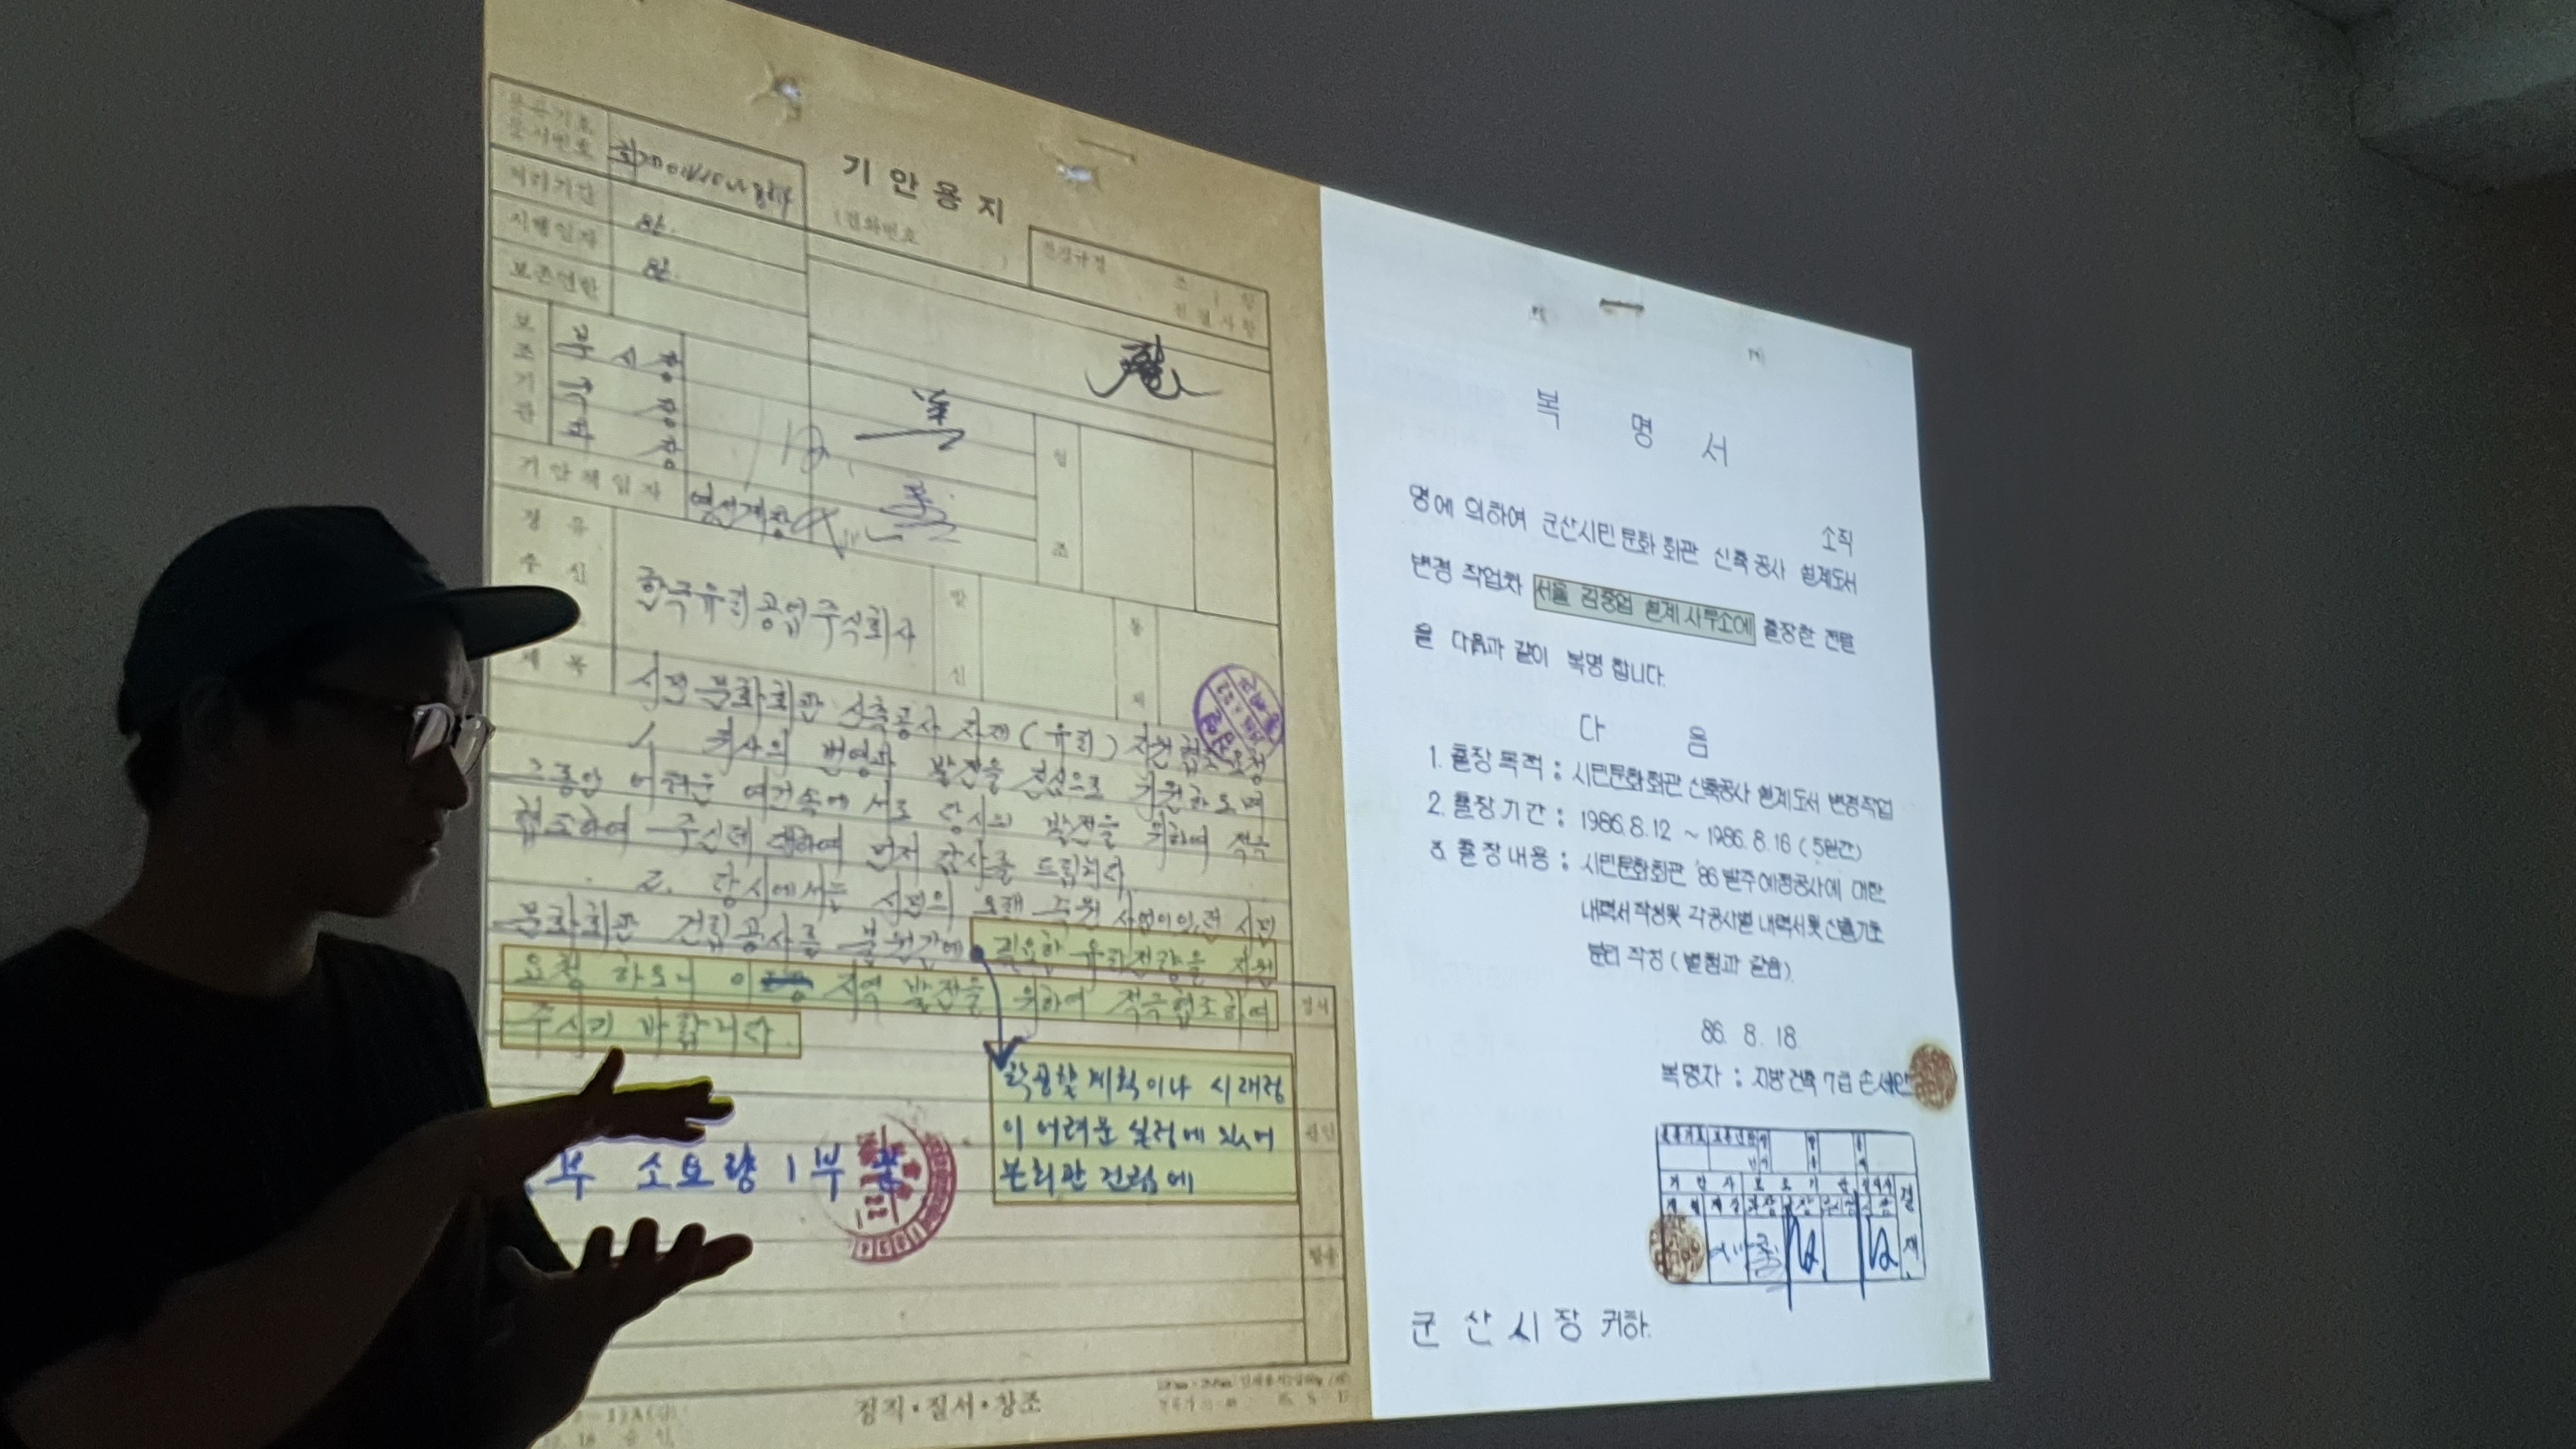 기안용지
문서번호
(전화번호 )
전결규정 조 항
전결사항
처리기간
시행일자
보존연한
보조기관
부시장
국장
과장
기안책임자 영선계장
협조
경유
수신 한국유리공업주식회사
발신
통제
제목 시민문화회관 신축공사 자재(유리) 지원 협조 요청
1. 귀사의 번영과 발전을 진심으로 기원하오며
그동안 어려운 여건속에서도 당시의 발전을 위하여 적극
협조하여 주신데 대하여 먼저 감사를 드립니다
2. 당시에서는 시민의 오랜 숙원 사업이었던 시민
문화회관 건립공사를 불원간에 필요한 유리전량을 지원
요청 하오니 이 지역 발전을 위하여 적극협조하여
주시기 바랍니다.
착공할 계획이나 시재정
이 어려운 실정에 있어
본회관 건립에
부 소요량 1부 끝
정서
관인
발송
정직·질서·창조
복명서
소직
명에 의하여 군산시민문화회관 신축공사 설계도서
변경 작업차 서울 김중업 설계사무소에 출장한 전말
을 다음과 같이 복명합니다.
다 음
1. 출장목적 : 시민문화회관 신축공사 설계도서 변경작업
2. 출장기간 : 1986.8.12 ~ 1986.8.16 (5일간)
3. 출장내용 : 시민문화회관 '86발주예정공사에 대한
내역서작성및 각공사별 내역서및 산출기초
분리 작성 (별첨과 같음).
86. 8. 18.
복명자 : 지방건축7급 손세안
결재
군산시장 귀하.